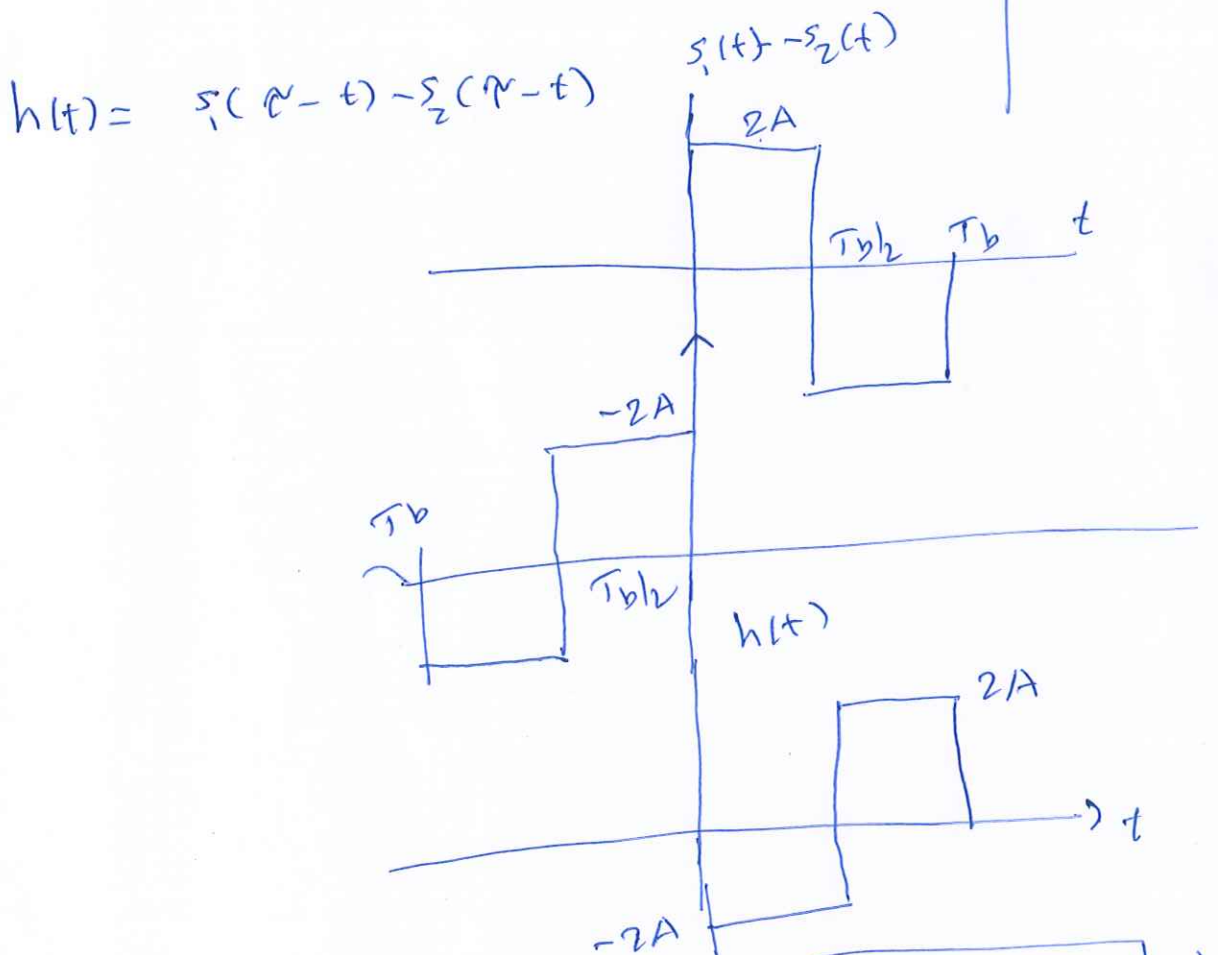 s₁(t) - s₂(t)
h(t) = s₁(τ - t) - s₂(τ - t)
2A
Tb/2 Tb t
-2A
Tb
Tb/2
h(t)
2A
t
-2A